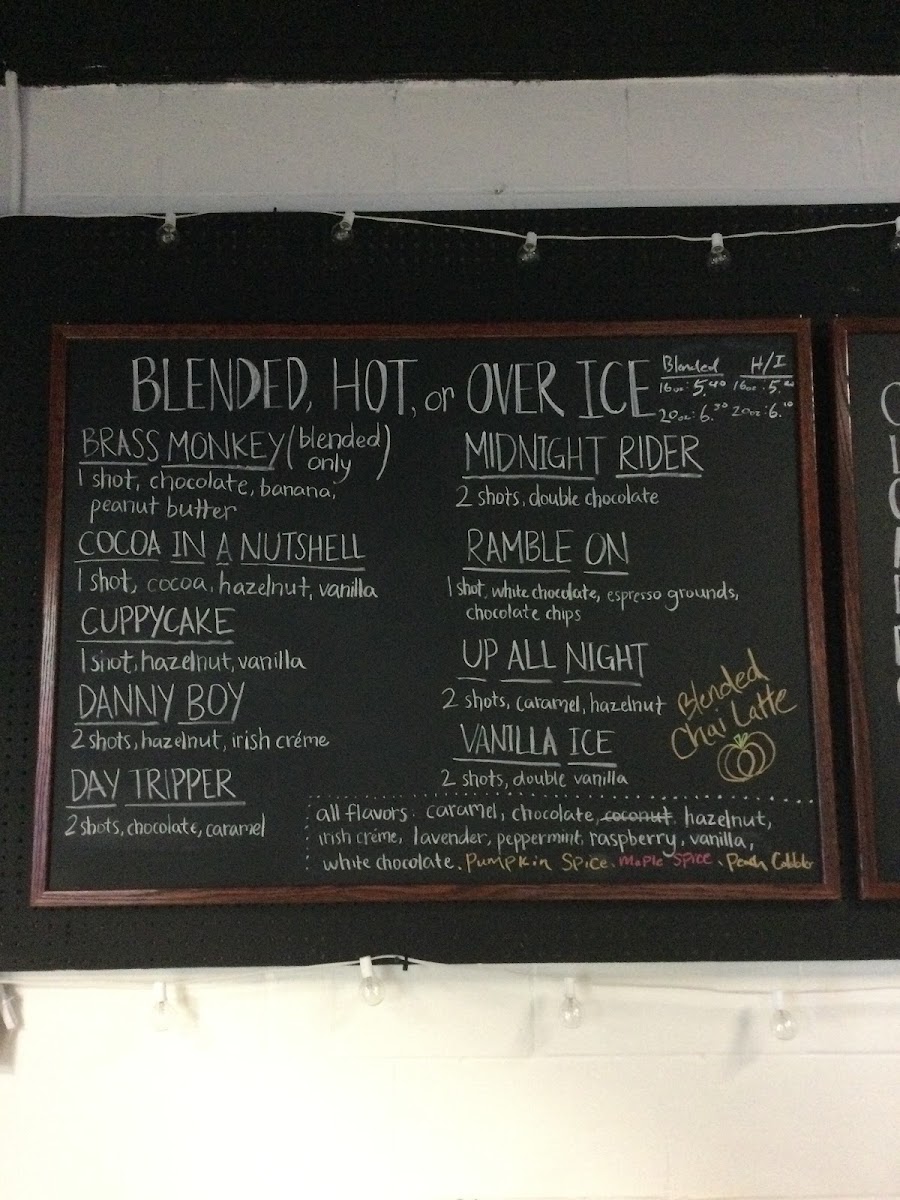 BLENDED, HOT, or OVER ICE
Blended H/I
16oz: 5.40 16oz: 5.
20oz: 6.30 20oz: 6.10
BRASS MONKEY (blended only)
1 shot, chocolate, banana,
peanut butter
COCOA IN A NUTSHELL
1 shot, cocoa, hazelnut, vanilla
CUPPYCAKE
1 shot, hazelnut, vanilla
DANNY BOY
2 shots, hazelnut, irish créme
DAY TRIPPER
2 shots, chocolate, caramel
MIDNIGHT RIDER
2 shots, double chocolate
RAMBLE ON
1 shot, white chocolate, espresso grounds,
chocolate chips
UP ALL NIGHT
2 shots, caramel, hazelnut
VANILLA ICE
2 shots, double vanilla
Blended
Chai Latte
all flavors: caramel, chocolate, coconut, hazelnut,
irish créme, lavender, peppermint, raspberry, vanilla,
white chocolate. Pumpkin Spice. Maple Spice. Peach Cobbler